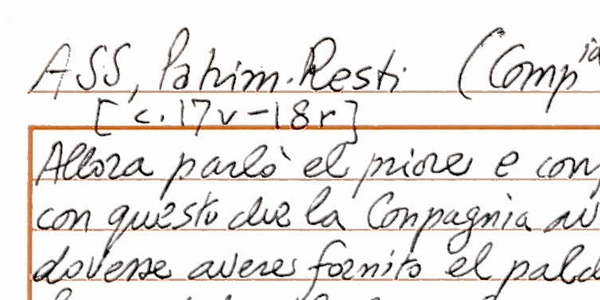 ASS, Patrim. Resti (Comp ia
[c. 17v-18r]
Allora parlò el priore e con
con questo che la Conpagnia
dovesse avere fornito el pal